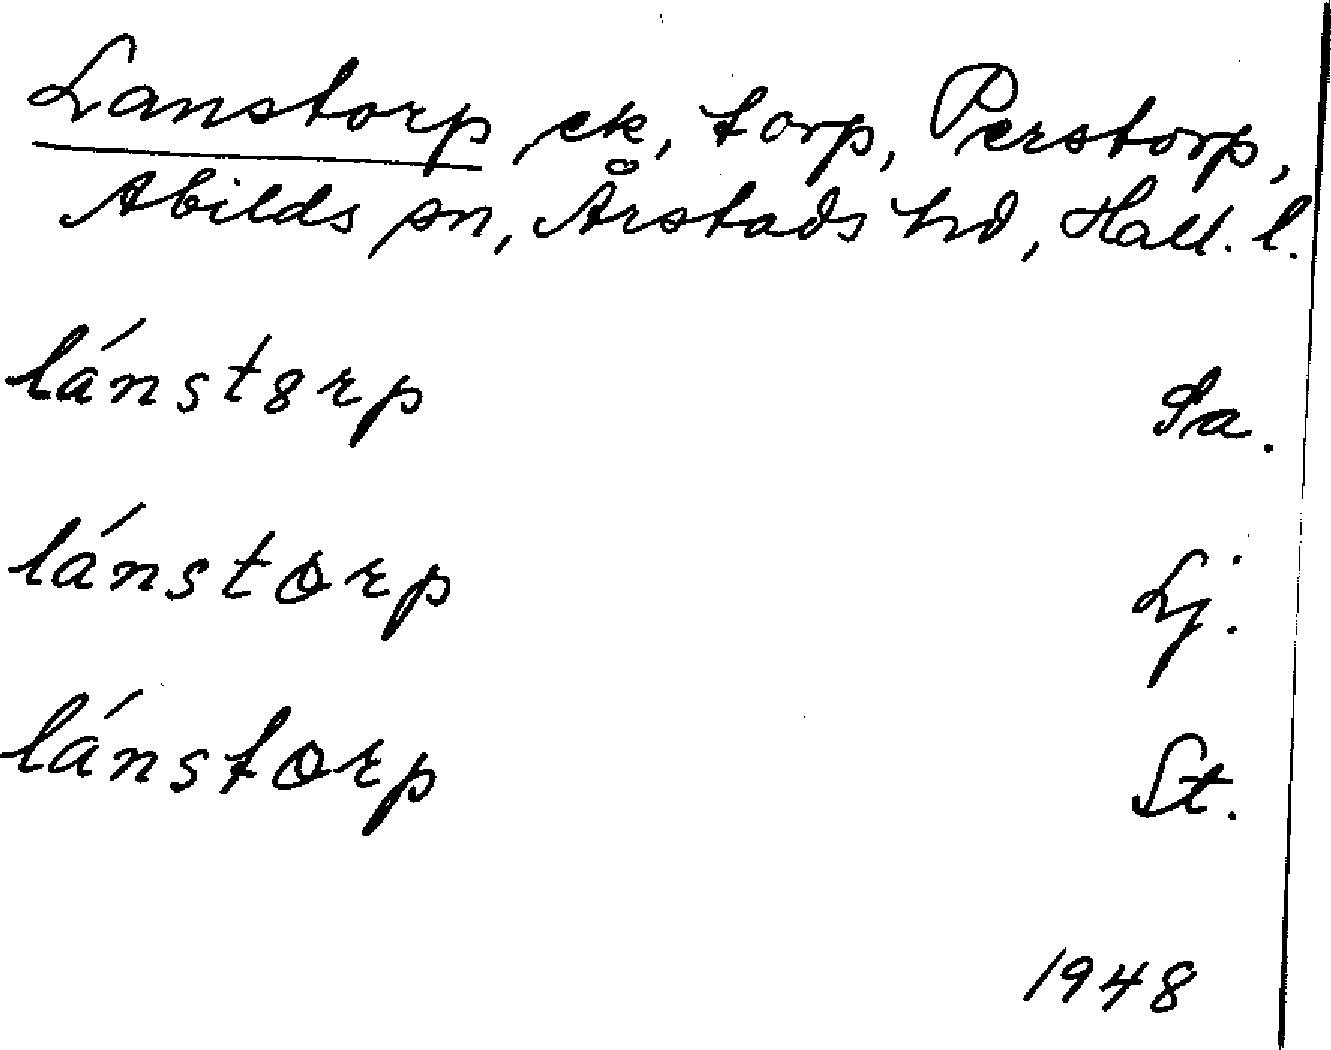 Lanstorp ek, torp, Perstorp,
Abilds sn, Årstads hd, Hall. l.
lánstɞrp Sa.
lánstɵrp Lj.
lánstɵrp St.
1948